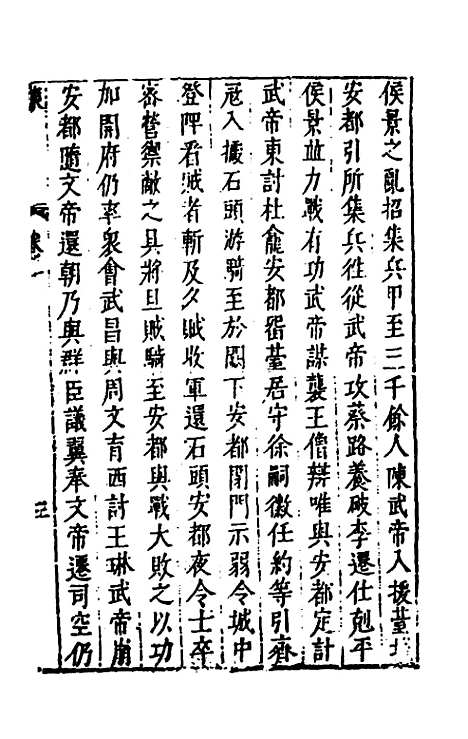 侯景之亂招集兵甲至三千餘人陳武帝入援臺
安都引所集兵徃從武帝攻蔡路養破李遷仕剋平
侯景並力戰有功武帝謀襲王僧辯唯與安都定計
武帝東討杜龕安都留臺居守徐嗣徽任約等引齊
冦入據石頭游騎至於闕下安都閉門示弱令城中
登陴看賊者斬及夕賊收軍還石頭安都夜令士卒
宻營禦敵之具將旦賊騎至安都與戰大敗之以功
加開府仍率衆會武昌與周文育西討王琳武帝崩
安都隨文帝還朝乃與群臣議翼奉文帝遷司空仍
卷一
三